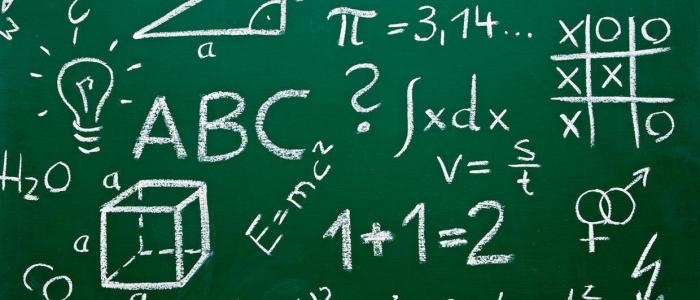 π = 3,14...
a
X O O
X X
X O
ABC
?
∫xdx
v = s/t
H₂O
a
E=mc²
1+1=2
a
CO
a